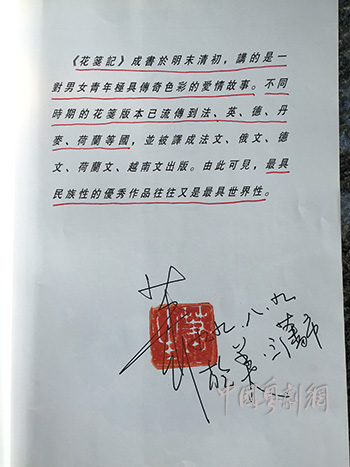 《花箋記》成書於明末清初，講的是一
對男女青年極具傳奇色彩的愛情故事。不同
時期的花箋版本已流傳到法、英、德、丹
麥、荷蘭等國，並被譯成法文、俄文、德
文、荷蘭文、越南文出版。由此可見，最具
民族性的優秀作品往往又是最具世界性。
九.八.九
中国粤剧網